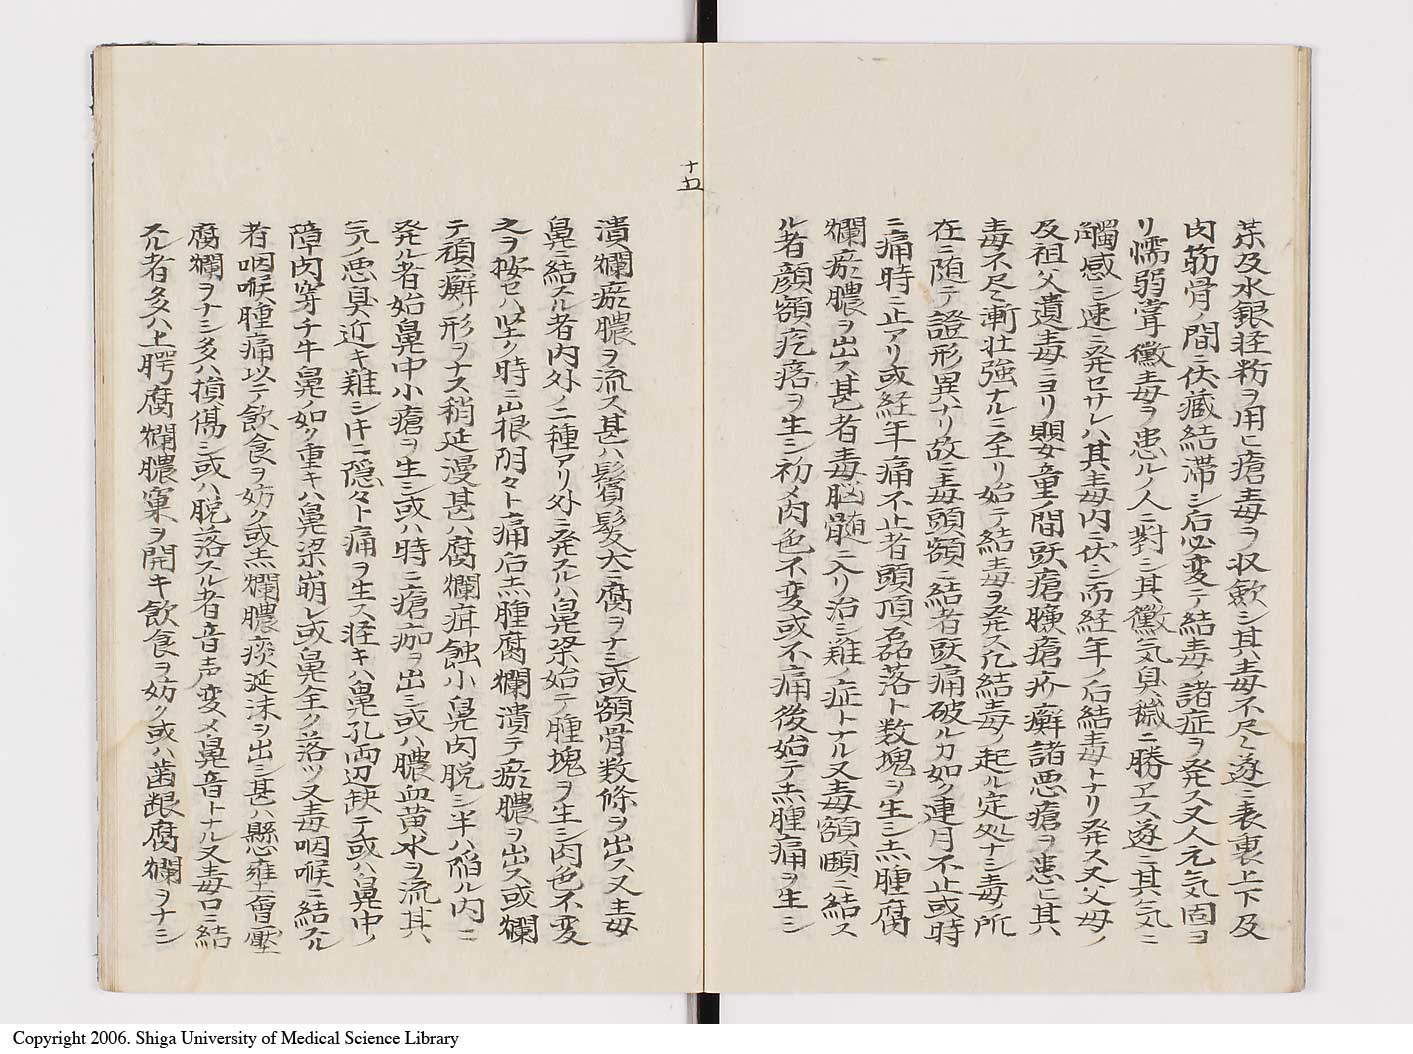 薬及水銀軽粉ヲ用ヒ瘡毒ヲ収斂シ其毒不尽シテ遂ニ表裏上下及
肉筋骨ノ間ニ伏蔵結滞シ后必変テ結毒ノ諸症ヲ発ス又人元気固ヨ
リ懦弱常黴毒ヲ患ルノ人ニ對シ其黴気臭穢ニ勝ヱス遂ニ其気ニ
觸感シ速ニ発セサレハ其毒内ニ伏シ而経年ノ后結毒トナリ発ス又父母ノ
及祖父遺毒ニヨリ嬰女童ノ間頭瘡臁瘡疥癬諸悪瘡ヲ患ヒ其
毒不尽シテ漸壮強ナルニ至リ始テ結毒ヲ発ス凡結毒ノ起ル定処ナシ毒ノ所
在ニ随テ證形異ナリ故ニ毒頭額ニ結者頭痛破ルカ如ク連月不止或時
ニ痛時ニ止アリ或経年痛不止者頭頂磊落ト数塊ヲ生シ赤腫腐
爛瘀膿ヲ出ス甚者毒脳髄ニ入リ治シ難ノ症トナル又毒額頤ニ結ス
ル者顔額疙瘩ヲ生シ初メ肉色不変或不痛後始テ赤腫痛ヲ生シ
十五
潰爛瘀膿ヲ流ス甚ハ鬢髪大ニ腐ヲナシ或額骨数條ヲ出ス又毒
鼻ニ結スル者内外ノ二種アリ外ニ発スルハ鼻梁始テ腫塊ヲ生シ肉色不変
之ヲ按セハ堅ク時ニ出根陰々ト痛后赤腫腐爛潰テ瘀膿ヲ出ス或爛
テ頑癬ノ形ヲナス稍延漫甚ハ腐爛疽蝕小鼻肉脱シ半ハ陥ル内ニ
発ル者始鼻中小瘡ヲ生シ或ハ時ニ瘡痂ヲ出シ或ハ膿血黄水ヲ流其、
気ノ悪臭近キ難シ時ニ隠々ト痛ヲ生ス軽キハ鼻孔両辺缺テ或ハ鼻中ノ
障肉穿チ牛鼻ノ如ク重キハ鼻梁崩レ或鼻全ク落ツ又毒咽喉ニ結スル
者咽喉腫痛以テ飲食ヲ妨ク或赤爛膿痰涎沫ヲ出シ甚ハ懸雍上會壓
腐爛ヲナシ多ハ損傷シ或ハ脱落スル者音声変メ鼻音トナル又毒口ニ結
スル者多ハ上腭腐爛膿窠ヲ開キ飲食ヲ妨ク或ハ歯齦腐爛ヲナシ
Copyright 2006. Shiga University of Medical Science Library